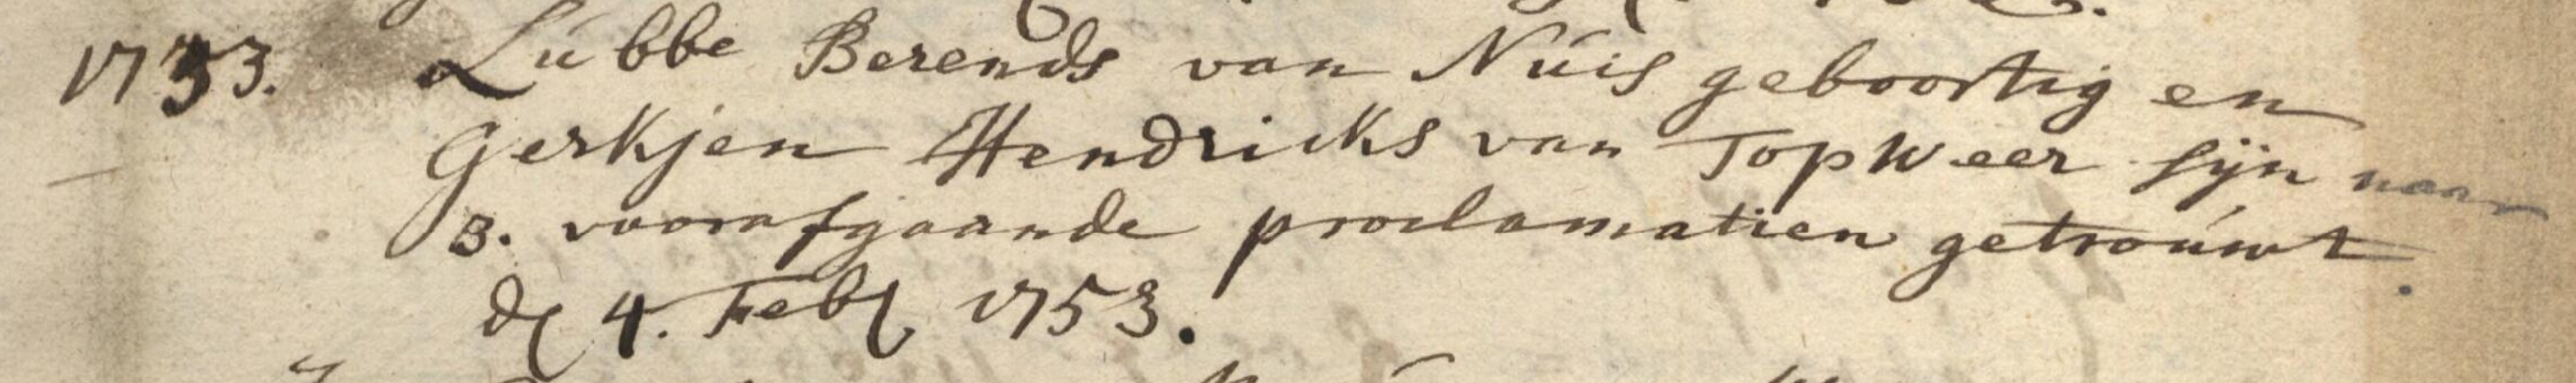 1753. Lubbe Berends van Nuis geboortig en
Gerkjen Hendricks van Topweer sijn naar
3. voorafgaande proclamatien getrouwt.
de 4. Feb 1753.